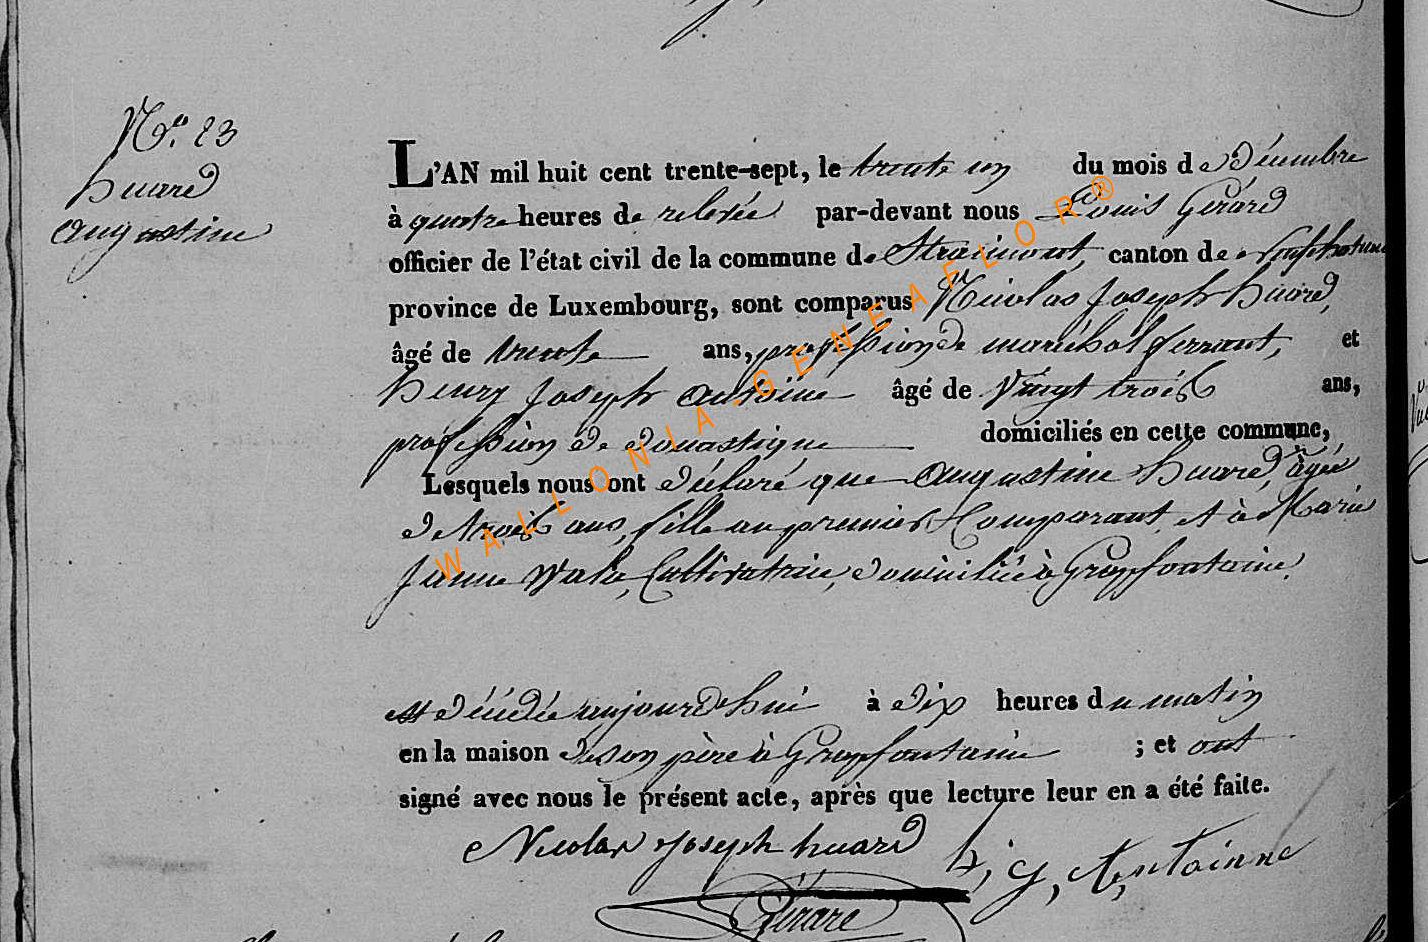 No. 23
huard
augustine
L'AN mil huit cent trente-sept, le trente un du mois de Décembre
à quatre heures de relevée par-devant nous Louis Gérard
officier de l'état civil de la commune de Straimont, canton de Neufchateau
province de Luxembourg, sont comparus Nicolas Joseph huard,
âgé de trente ans, profession de maréchal ferrant, et
henry Joseph antoine âgé de Vingt trois ans,
profession de domestique domiciliés en cette commune,
Lesquels nous ont déclaré que augustine huard, âgée
de trois ans, fille au premier Comparant et à Marie
Jeanne Cultivatrice, domiciliée à Grapfontaine.
est décédée aujourd'hui à dix heures du matin
en la maison de son père à Grapfontaine ; et ont
signé avec nous le présent acte, après que lecture leur en a été faite.
Nicolas Joseph huard h, j, Antoinne
Gérard
WALLONIA-GENEAFLOR®